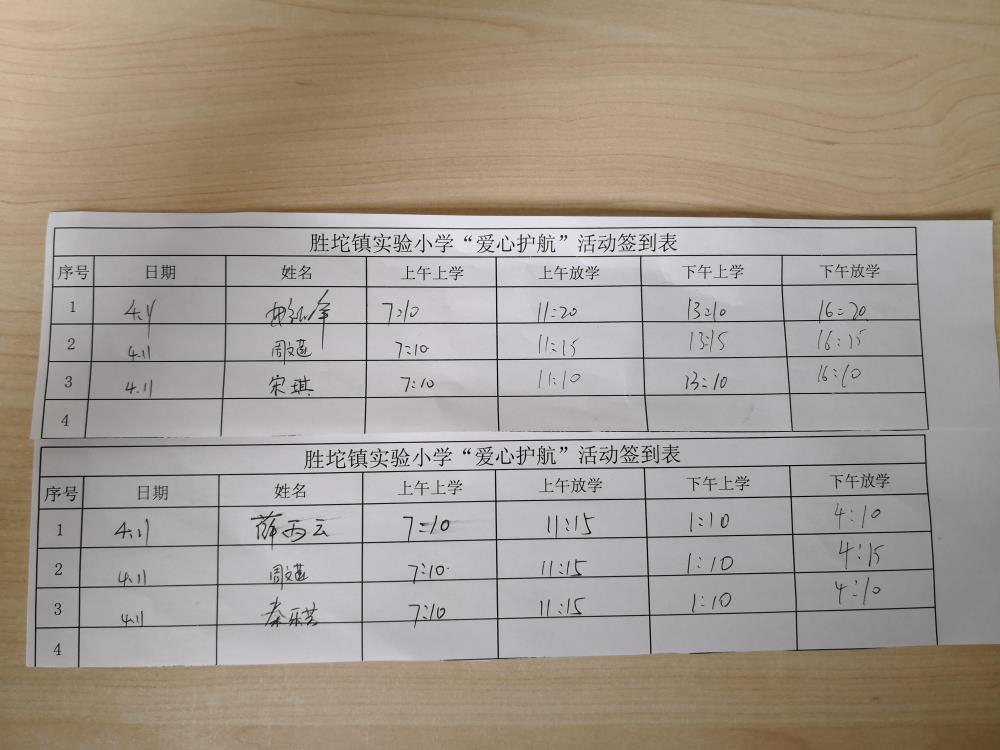 胜坨镇实验小学“爱心护航”活动签到表
序号 日期 姓名 上午上学 上午放学 下午上学 下午放学
1 4.11 7:10 11:20 13:10 16:20
2 4.11 周文莲 7:10 11:15 13:15 16:15
3 4.11 宋琪 7:10 11:10 13:10 16:10
4
胜坨镇实验小学“爱心护航”活动签到表
序号 日期 姓名 上午上学 上午放学 下午上学 下午放学
1 4.11 薛丙云 7:10 11:15 1:10 4:10
2 4.11 周文莲 7:10 11:15 1:10 4:15
3 4.11 7:10 11:15 1:10 4:10
4